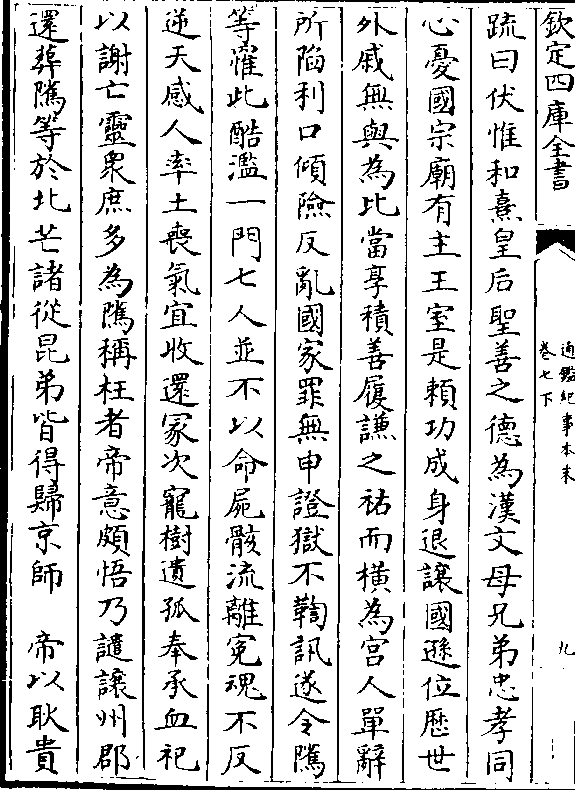 欽定四庫全書
通鑑紀事本末
卷七下
九
疏曰伏惟和熹皇后聖善之德為漢文母兄弟忠孝同
心憂國宗廟有主王室是賴功成身退讓國遜位歷世
外戚無與為比當享積善履謙之祐而橫為宫人單辭
所陷利口傾險反亂國家罪無申證獄不鞫訊遂令隲
等罹此酷濫一門七人並不以命屍骸流離寃魂不反
逆天感人率土喪氣宜收還冢次寵樹遺孤奉承血祀
以謝亡靈衆庶多為隲稱枉者帝意頗悟乃譴讓州郡
還葬隲等於北芒諸從昆弟皆得歸京師　帝以耿貴